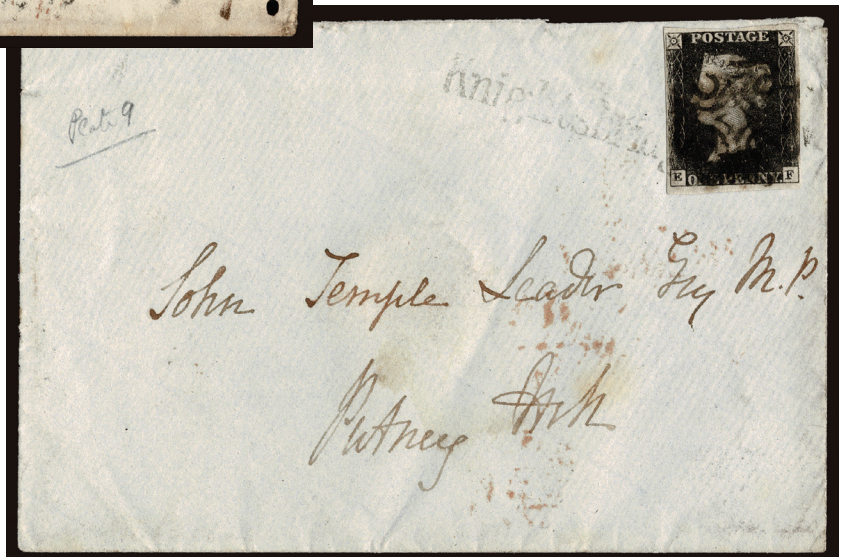 Plate 9
Knightsbridge
POSTAGE
E ONE PENNY F
John Temple Leader Esq M.P.
Putney Hill